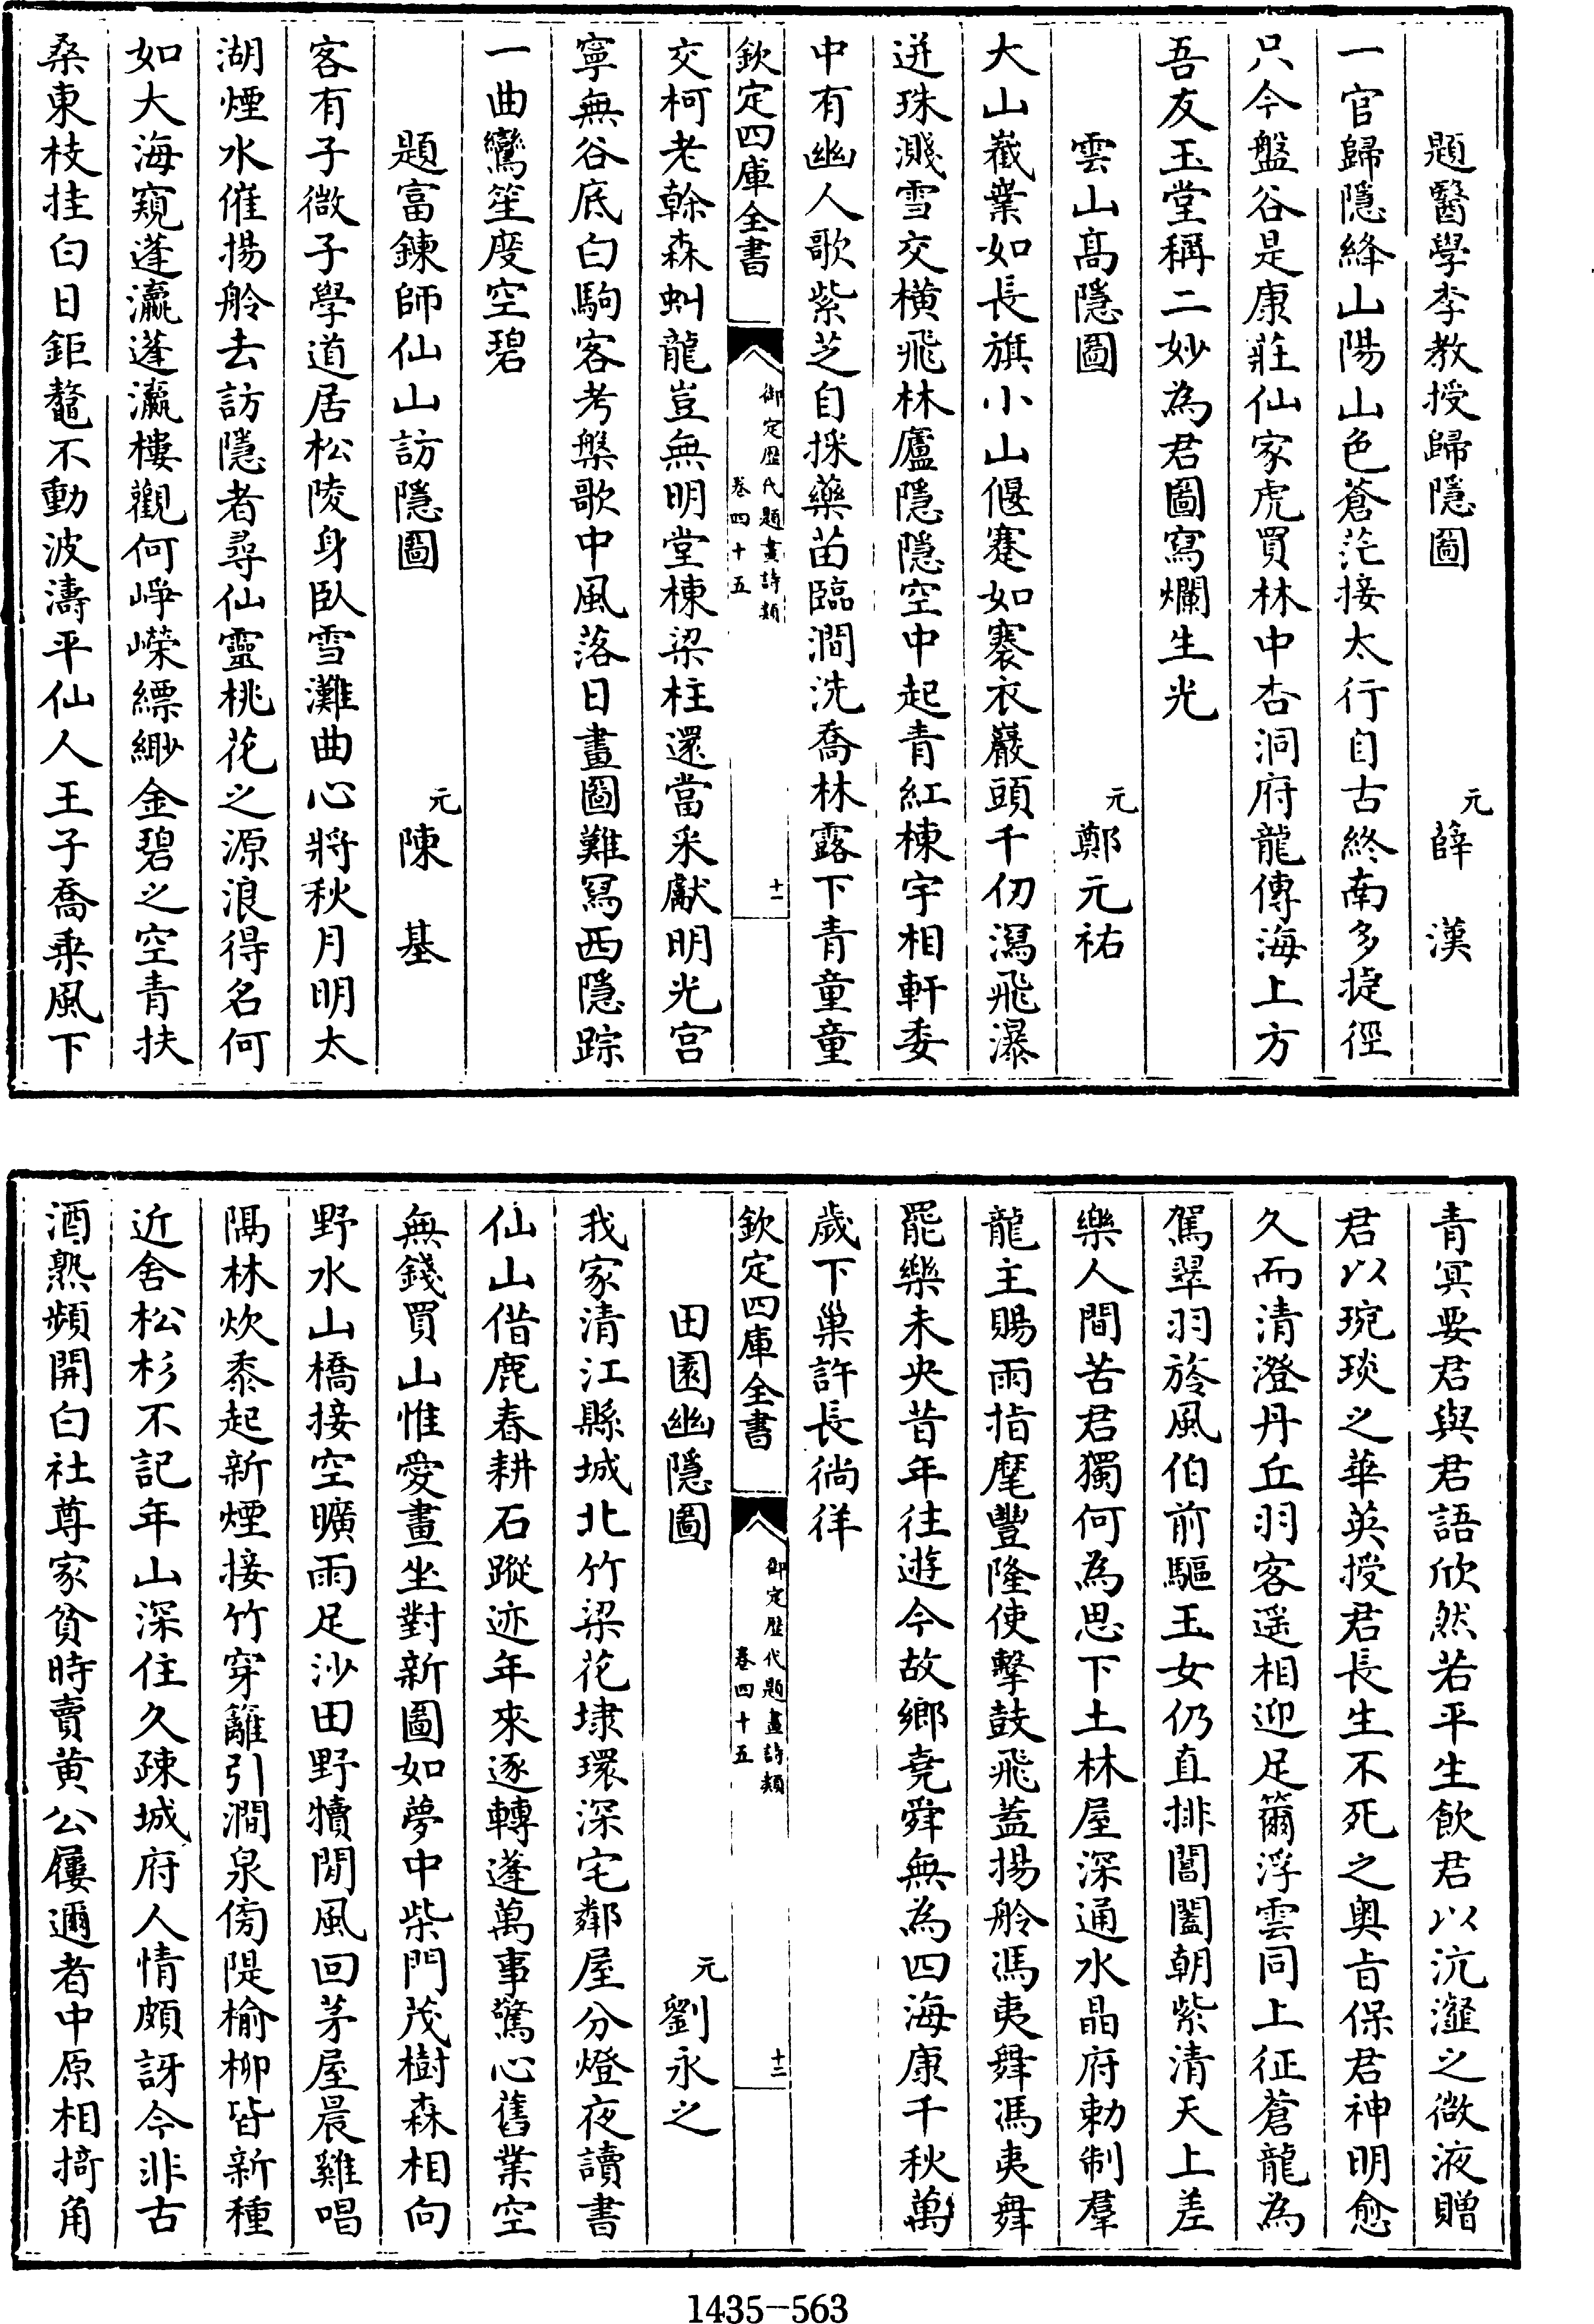 題醫學李教授歸隱圖　元薛漢
一官歸隱絳山陽山色蒼茫接太行自古終南多捷徑
只今盤谷是康莊仙家虎買林中杏洞府龍傳海上方
吾友玉堂稱二妙為君圖寫爛生光
雲山髙隱圖　元鄭元祐
大山嶻業如長旗小山偃蹇如褰衣巖頭千仞瀉飛瀑
迸珠濺雪交橫飛林廬隱隱空中起青紅棟宇相軒委
中有幽人歌紫芝自採藥苗臨澗洗喬林露下青童童
欽定四庫全書　御定歴代題畫詩類卷四十五　十一
交柯老榦森虯龍豈無明堂棟梁柱還當采獻明光宫
寧無谷底白駒客考槃歌中風落日畫圖難寫西隱踪
一曲鸞笙度空碧
題富鍊師仙山訪隱圖　元陳基
客有子微子學道居松陵身臥雪灘曲心將秋月明太
湖煙水催揚舲去訪隱者尋仙靈桃花之源浪得名何
如大海窺蓬瀛蓬瀛樓觀何崢嶸縹緲金碧之空青扶
桑東枝挂白日鉅鼇不動波濤平仙人王子喬乘風下
青冥要君與君語欣然若平生飲君以沆瀣之微液贈
君以琬琰之華英授君長生不死之奥旨保君神明愈
久而清澄丹丘羽客遥相迎足籋浮雲同上征蒼龍為
駕翠羽旍風伯前驅玉女仍直排閶闔朝紫清天上差
樂人間苦君獨何為思下土林屋深通水晶府勅制羣
龍主賜雨指麾豐隆使擊鼓飛葢揚舲馮夷舞馮夷舞
罷樂未央昔年往遊今故鄉堯舜無為四海康千秋萬
歲下巢許長徜徉
欽定四庫全書　御定歴代題畫詩類卷四十五　十二
田園幽隱圖　元劉永之
我家清江縣城北竹梁花埭環深宅鄰屋分燈夜讀書
仙山借鹿春耕石蹤迹年來逐轉蓬萬事驚心舊業空
無錢買山惟愛畫坐對新圖如夢中柴門茂樹森相向
野水山橋接空曠雨足沙田野犢閒風回茅屋晨雞唱
隅林炊黍起新煙接竹穿籬引澗泉傍隄榆柳皆新種
近舍松杉不記年山深住久疎城府人情頗訝今非古
酒熟頻開白社尊家貧時賣黄公屨邇者中原相掎角
1435-563